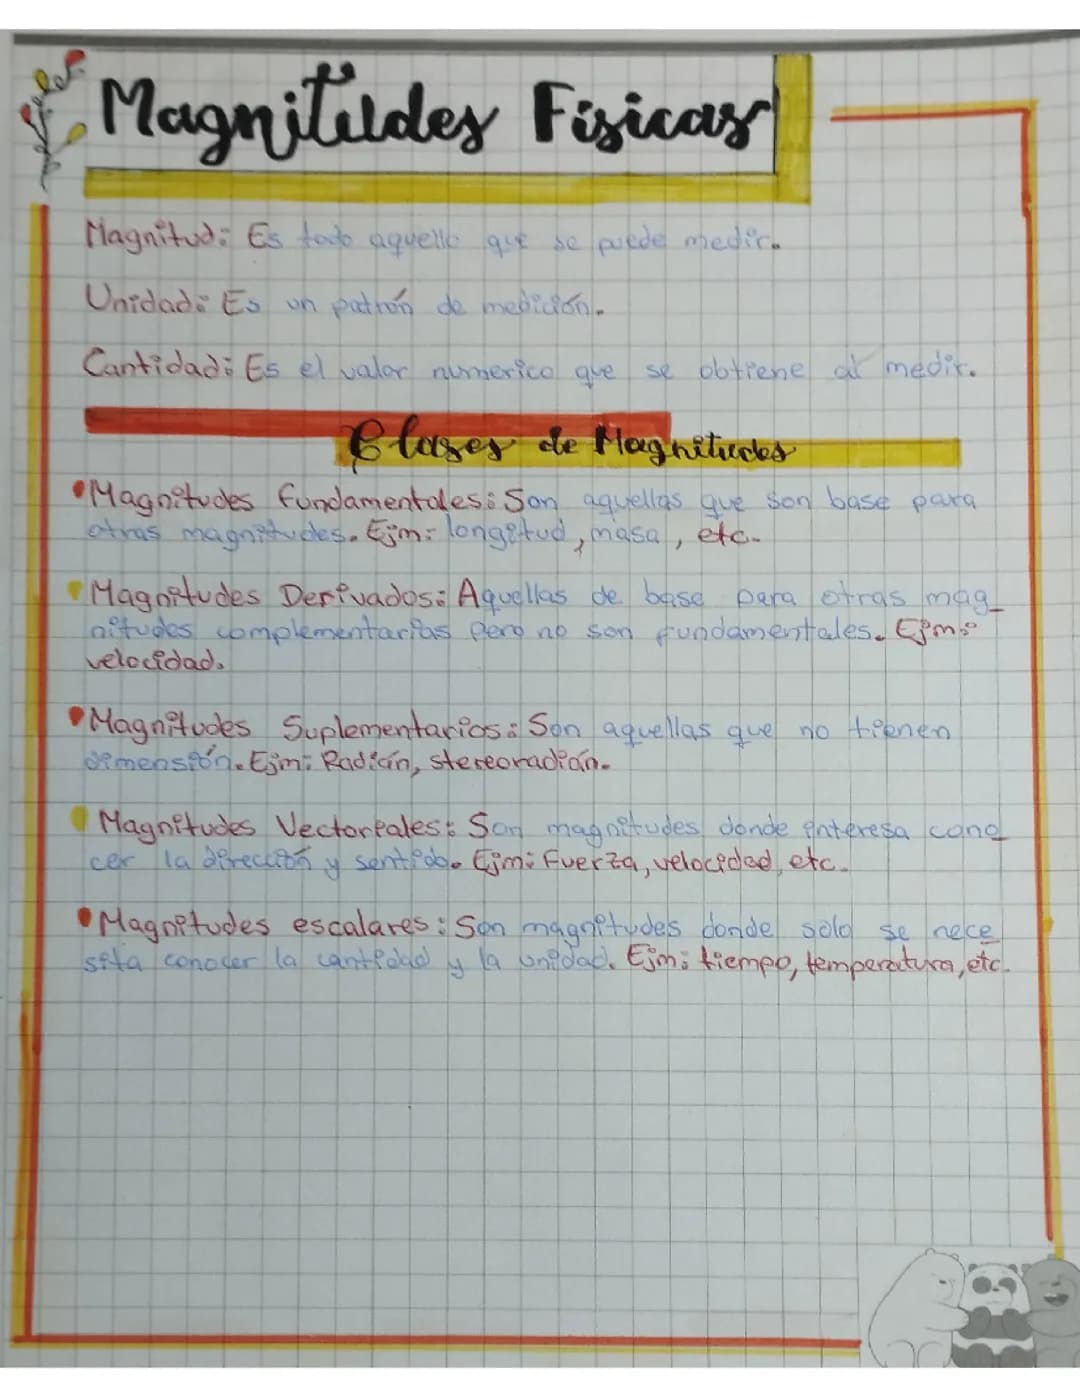 Magnitudes Fisicas
Magnitud: Es todo aquello que se puede medir.
Unidad: Es un patrón de medición.
Cantidad: Es el valor numerico que se obtiene al medir.
Clases de Magnitudes
•Magnitudes fundamentales: Son aquellas que son base para
otras magnitudes. Ejm: longitud, masa, etc.
•Magnitudes Derivados: Aquellas de base para otras mag_
nitudes complementarias pero no son fundamentales. Ejm:
velocidad.
•Magnitudes Suplementarios: Son aquellas que no tienen
dimensión. Ejm: Radián, stereoradián.
•Magnitudes Vectoriales: Son magnitudes donde interesa cono
cer la dirección y sentido. Ejm: Fuerza, velocidad, etc.
•Magnitudes escalares: Son magnitudes donde solo se nece
sita conocer la cantidad y la unidad. Ejm: tiempo, temperatura, etc.